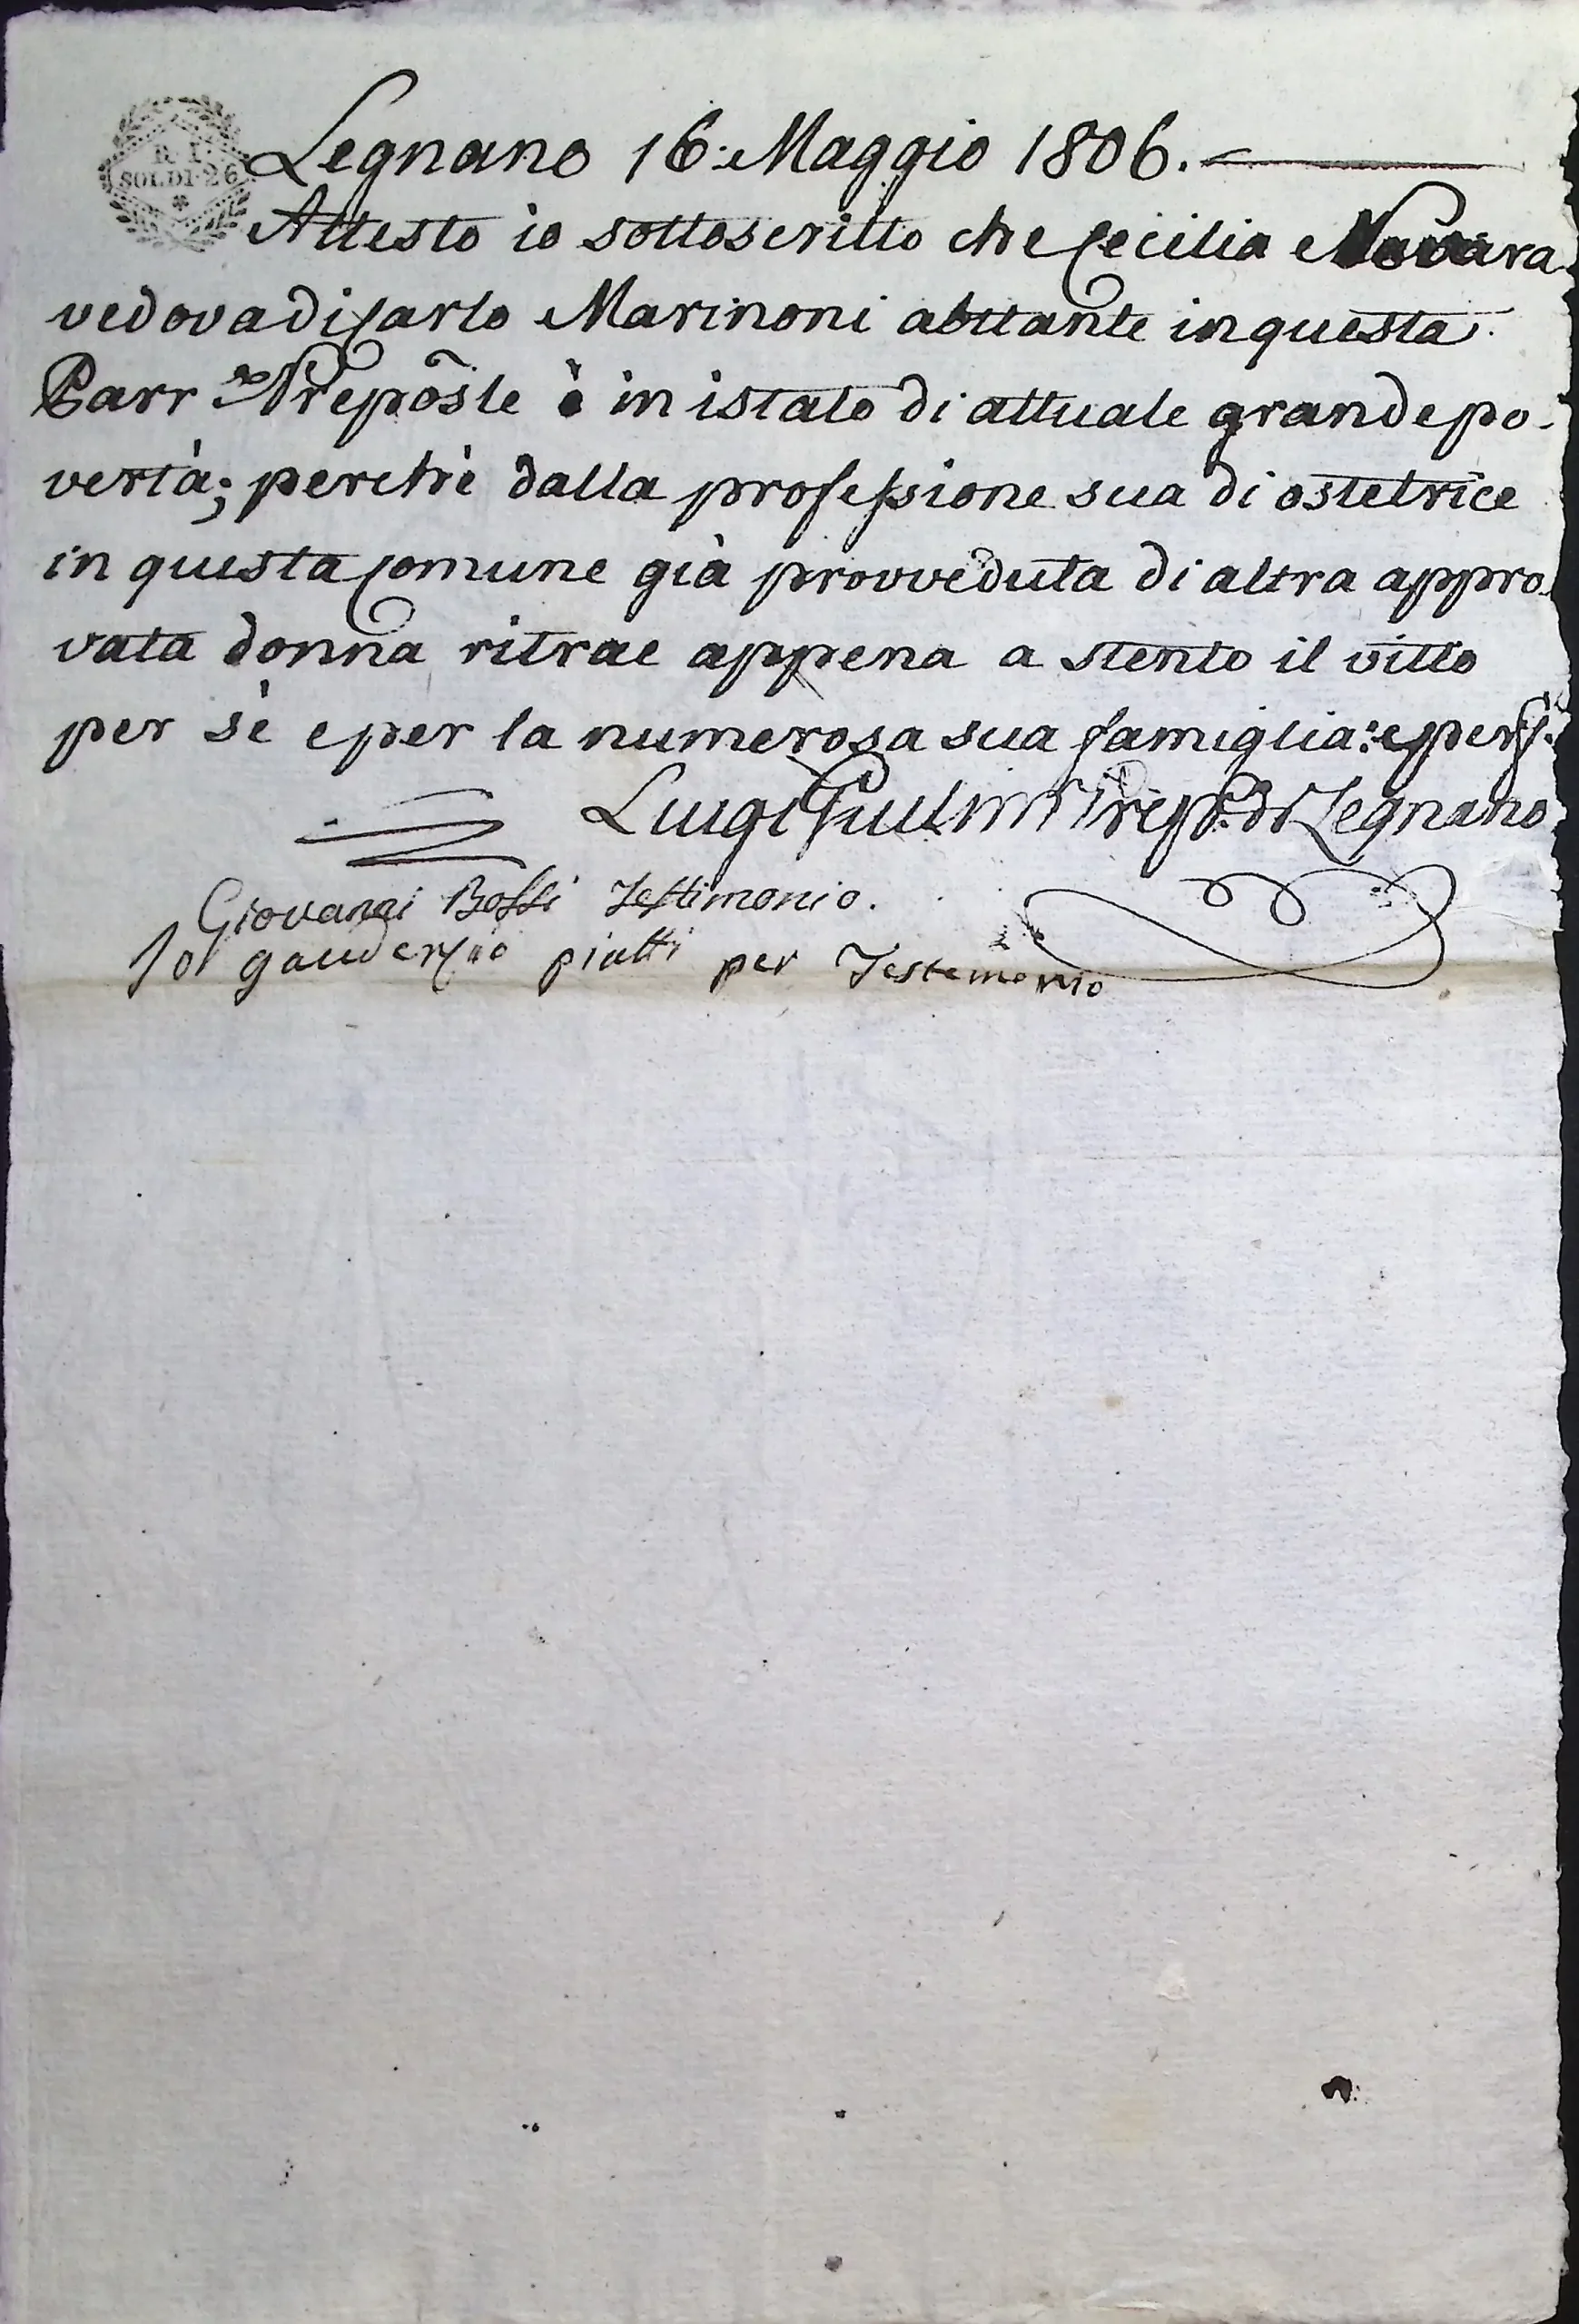 R. I.
SOLDI 26
Legnano 16. Maggio 1806.
Attesto io sottoscritto che Cecilia Novara
vedova di Carlo Marinoni abitante in questa
Parr. Prepõsle è in istato di attuale grande po-
vertà; perchè dalla professione sua di ostetrice
in questa Comune già provveduta di altra appro-
vata donna ritrae appena a stento il vitto
per sè e per la numerosa sua famiglia: e per
Luigi Prep. di Legnano
Giovanni Bossi Testimonio.
Io gaudenzio piatti per Testemonio